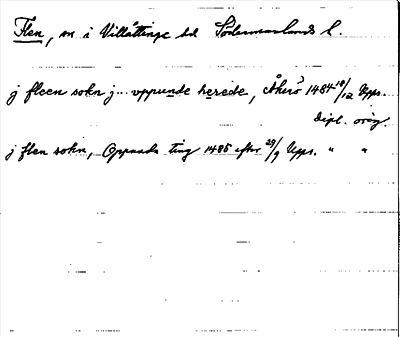 Flen, sn i Villåttinge hd Södermanlands l.
j fleen sokn j... oppunde herede, Åkerö 1484 18/12 Upps.
Dipl. orig.
j flen sokn, Oppunda ting 1485 efter 29/9 Upps. " "